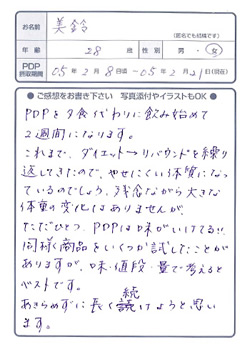 お名前 美鈴
(匿名でも結構です)
年齢 28歳 性別 男・女
PDP摂取期間 05年2月8日〜05年2月21日(現在)
●ご感想をお書き下さい 写真添付やイラストもOK●
PDPを夕食代わりに飲み始めて
2週間になります。
これまで、ダイエット→リバウンドを繰り
返してきたので、やせにくい体質になっ
ているのでしょう、残念ながら大きな
体重変化はありませんが、
ただひとつ、PDPは味がいけてる!!
同様商品をいくつか試したことが
ありますが、味・値段・量で考えると
ベストです。
あきらめずに長く続けようと思い
ます。